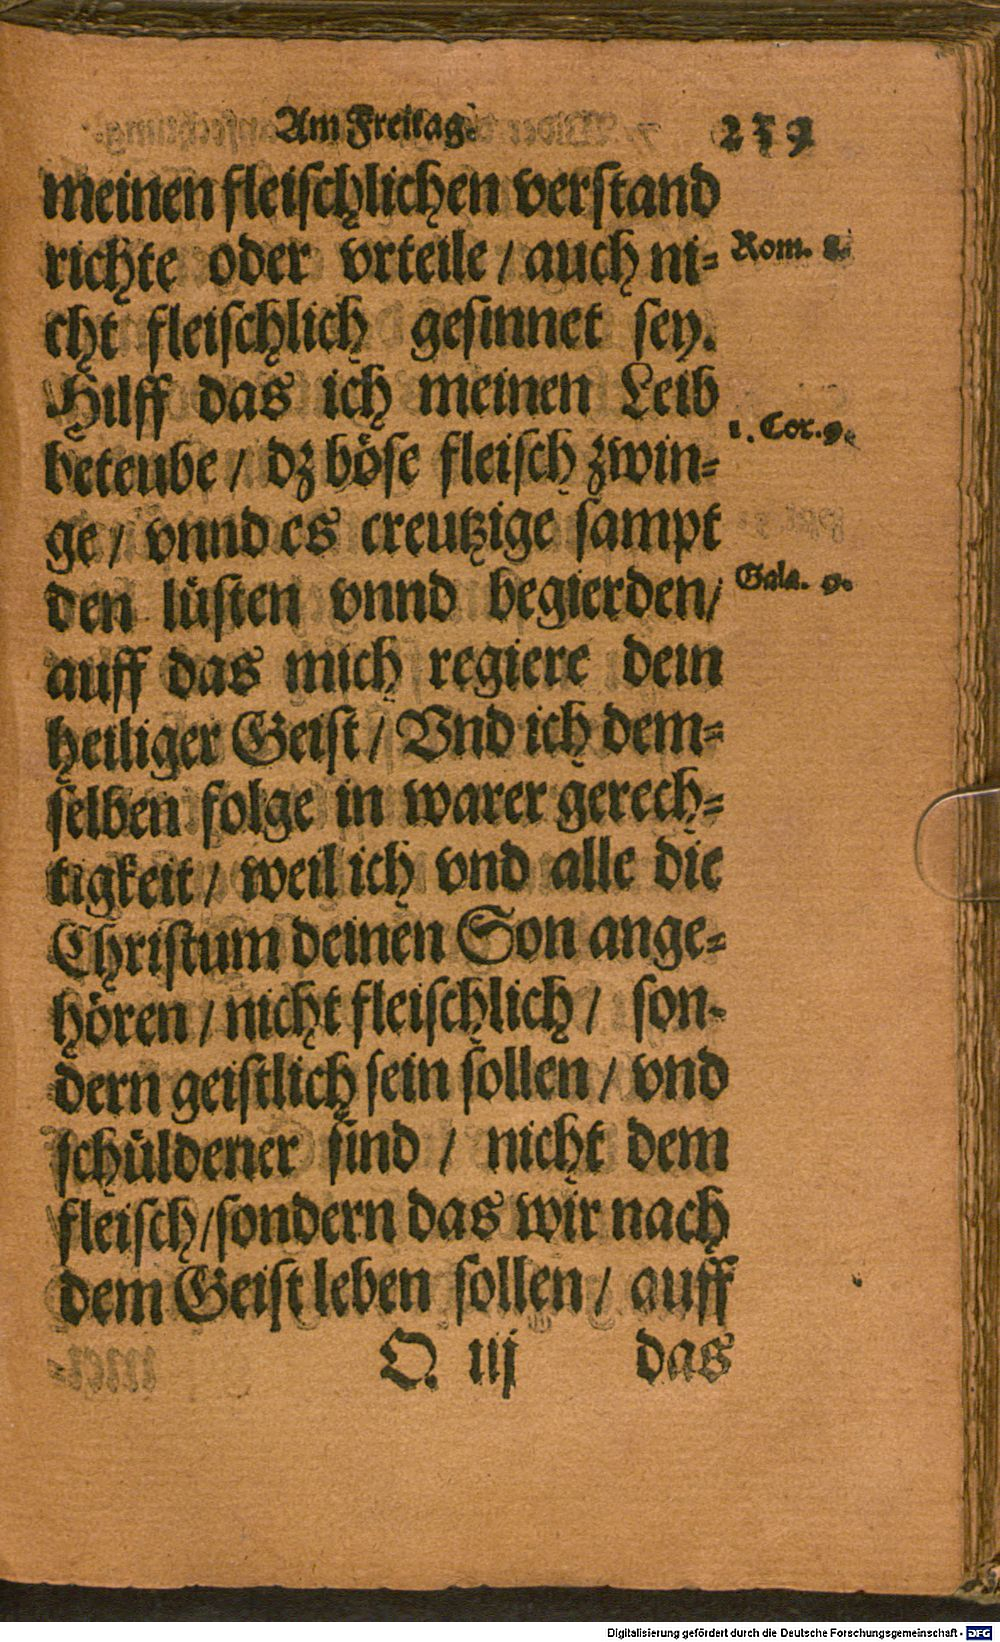 Am Freitag. 239
meinen fleischlichen verstand
richte oder vrteile / auch ni-
Rom. 8.
cht fleischlich gesinnet sey.
Hilff das ich meinen Leib
1. Cor. 9.
beteube / dz böse fleisch zwin-
ge / vnnd es creutzige sampt
den lüsten vnnd begierden /
Gala.
auff das mich regiere dein
heiliger Geist / Vnd ich dem-
selben folge in warer gerech-
tigkeit / weil ich vnd alle die
Christum deinen Son ange-
hören / nicht fleischlich / son-
dern geistlich sein sollen / vnd
schüldener sind / nicht dem
fleisch / sondern das wir nach
dem Geist leben sollen / auff
iij das
Digitalisierung gefördert durch die Deutsche Forschungsgemeinschaft - DFG